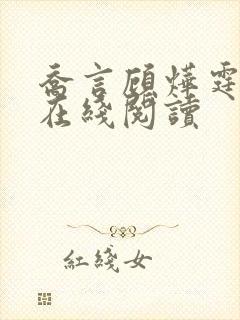 喬言顧燁霆
在綫閱讀
紅綫女